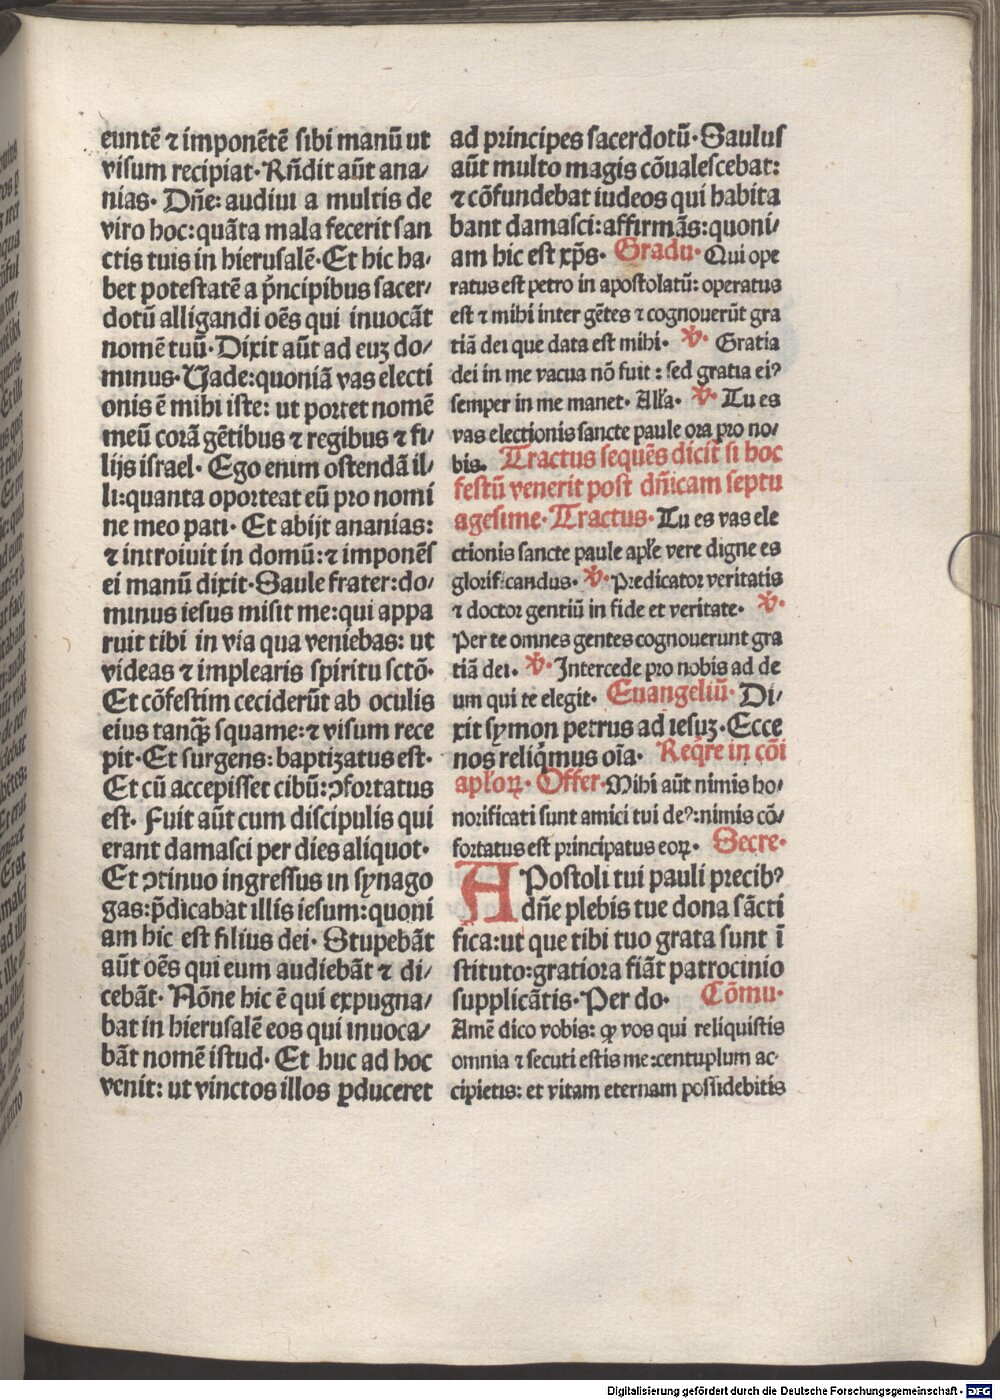 euntē ⁊ imponētē sibi manū ut
visum recipiat· Rñdit aūt ana⸗
nias· Dñe: audivi a multis de
viro hoc: quāta mala fecerit san
ctis tuis in hierusalē· Et hic ha⸗
bet potestatē a p̄ncipibus sacer⸗
dotū alligandi oēs qui invocāt
nomē tuū· Dixit aūt ad euȝ do⸗
minus· Vade: quoniā vas electi
onis ē mihi iste: ut portet nomē
meū corā gētibus ⁊ regibus ⁊ fi⸗
lijs israel· Ego enim ostendā il⸗
li: quanta oporteat eū pro nomi
ne meo pati· Et abijt ananias:
⁊ introivit in domū: ⁊ imponēs
ei manū dixit· Saule frater: do⸗
minus iesus misit me: qui appa
ruit tibi in via qua veniebas: ut
videas ⁊ implearis spiritu sctō·
Et cōfestim ceciderūt ab oculis
eius tanq̄ȝ squame: ⁊ visum rece
pit· Et surgens: baptizatus est·
Et cū accepisset cibū: ꝯfortatus
est· Fuit aūt cum discipulis qui
erant damasci per dies aliquot·
Et ꝯtinuo ingressus in synago
gas: p̄dicabat illis iesum: quoni
am hic est filius dei· Stupebāt
aūt oēs qui eum audiebāt ⁊ di⸗
cebāt· Nōne hic ē qui expugna⸗
bat in hierusalē eos qui invoca⸗
bāt nomē istud· Et huc ad hoc
venit: ut vinctos illos ꝑduceret
ad principes sacerdotū· Saulus
aūt multo magis cōvalescebat:
⁊ cōfundebat iudeos qui habita
bant damasci: affirmās: quoni⸗
am hic est xp̄s· Gradu· Qui ope
ratus est petro in apostolatū: operatus
est ⁊ mihi inter gētes ⁊ cognoverūt gra
tiā dei que data est mihi· ℣· Gratia
dei in me vacua nō fuit: sed gratia eiꝰ
semper in me manet· All'a· ℣· Tu es
vas electionis sancte paule ora pro no⸗
bis. Tractus sequēs dicit̄ si hoc
festū venerit post dn̄icam septu
agesime· Tractus· Tu es vas ele
ctionis sancte paule apl'e vere digne es
glorificandus· ℣· Predicator veritatis
⁊ doctor gentiū in fide et veritate· ℣·
Per te omnes gentes cognoverunt gra
tiā dei· ℣· Intercede pro nobis ad de
um qui te elegit· Evangeliū· Di⸗
xit symon petrus ad iesuȝ· Ecce
nos reliq̇mus oīa· Reqͥre in cōi
apl'oꝝ· Offer· Mihi aūt nimis ho⸗
norificati sunt amici tui deꝰ: nimis cō⸗
fortatus est principatus eoꝝ· Secre·
APostoli tui pauli precibꝰ
dñe plebis tue dona sācti
fica: ut que tibi tuo grata sunt ī
stituto: gratiora fiāt patrocinio
supplicātis· Per do· Cōmu·
Amē dico vobis: ꝙ vos qui reliquistis
omnia ⁊ secuti estis me: centuplum ac⸗
cipietis: et vitam eternam possidebitis
Digitalisierung gefördert durch die Deutsche Forschungsgemeinschaft - DFG